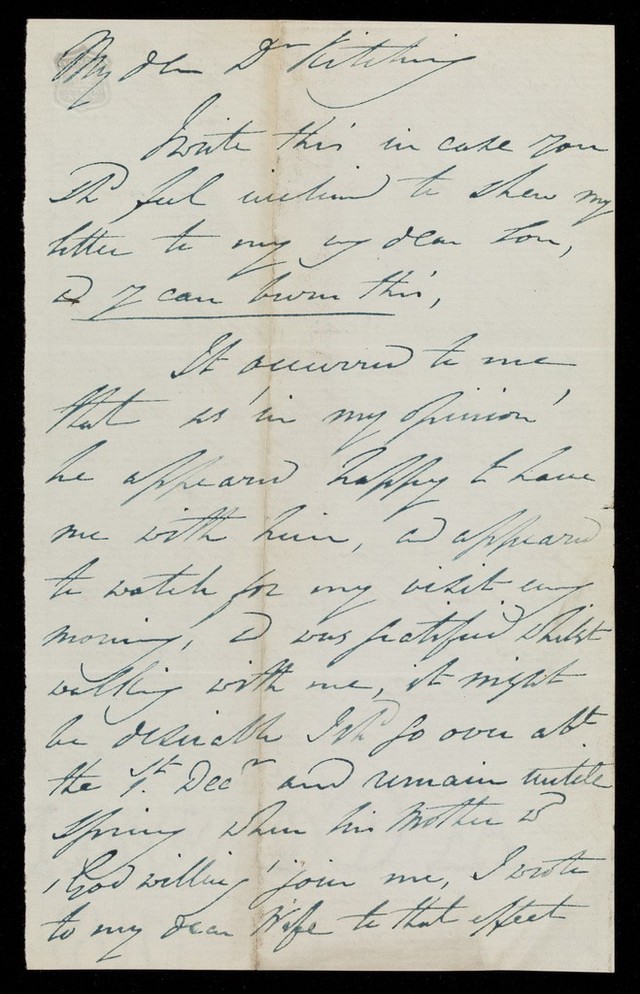 My dear Dr Kitching
I write this in case you
shd feel inclined to shew my
letter to my dear Son,
& y can burn this,
It occurred to me
that as 'in my opinion'
he appeared happy to have
me with him, and appeared
to watch for my visit every
morning, & was gratified whilst
walking with me, it might
be desirable I shd go over abt
the 1st Decr and remain untill
Spring when his Mother wd
'God willing' join me, I wrote
to my dear Wife to that effect